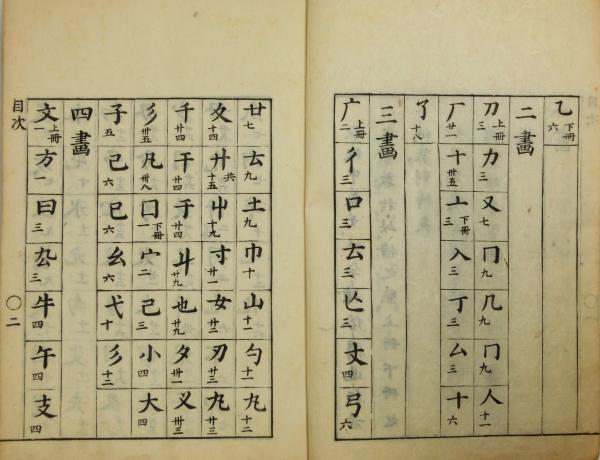 乙 下冊 六
二畫
刀 上冊 三 力 三 又 七 冂 九 几 九 冂 九 人 十一
厂 廿一 十 卅五 亠 下冊 三 入 三 丁 三 厶 三 十 六
了 十八
三畫
广 上冊 二 彳 三 口 三 去 三 亾 三 丈 四 弓 六
廿 七 去 九 土 九 巾 十 山 十一 勺 十一 九 十二
夊 十四 廾 共 十五 屮 十九 寸 廿一 女 廿二 刃 廿三 九 廿三
千 廿四 干 廿四 于 廿四 斗 廿九 也 廿九 夕 卅一 义 卅三
彡 卅五 凡 卅八 冂 下冊 一 宀 二 己 三 小 四 大 四
子 五 己 六 巳 六 幺 六 弋 十 彡 十二
四畫
文 上冊 一 方 一 曰 三 厹 三 牛 四 午 四 支 四
目次
二